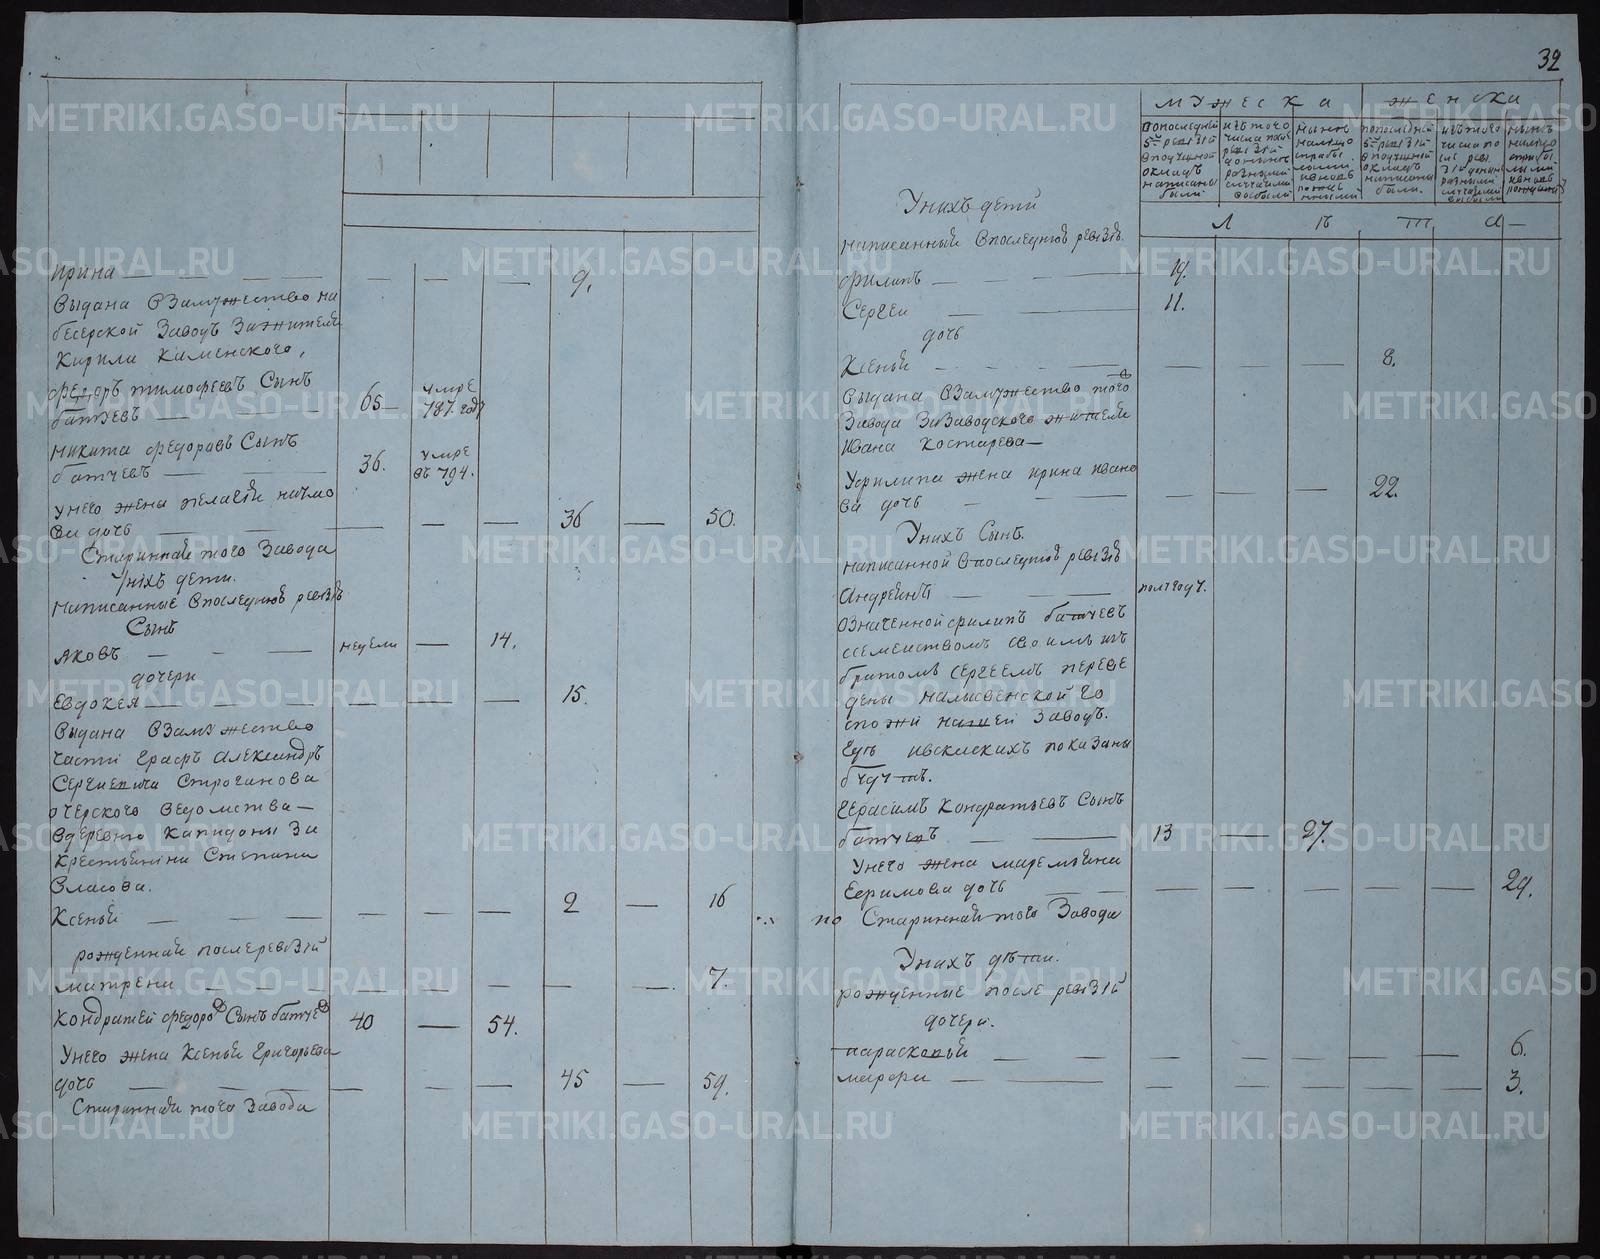 Ирина — 9.
выдана взамужество на
бесерской заводъ зажителя
Кирила Каменского,
Федоръ тимофеевъ Сынъ
батуевъ — 65 — умре 787. году
Никита Федоравъ Сынъ
батуевъ — 36. умре въ 794.
Унего жена пелагея наумо
ва дочь — 36 — 50.
Стариннай того Завода
Унихъ дети.
Написанные впоследнюю ревизію
Сынъ
Яковъ — недели — 14.
дочери
Евдокея — 15.
выдана взамужество
части Графъ Александръ
Сергиевича Строганова
очерского ведомства —
вдеревню Капидоны за
Крестьянина Степана
Власова.
Ксенья — 2 — 16
рожденная послеревизіи
матрена — 7.
Кондратей федоров Сынъ батуев 40 — 54.
Унего жена Ксенья Григорьева
дочь — 45 — 59.
Стариннай того Завода
32
мужеска
женска
впоследней 5й ревизіи вподушной окладъ написаны были
изъ того числа после ревизіи доныне разными случаями выбыли
ныне налицо
попоследней 5й ревизіи вподушной окладъ написаны были.
изъ того числа после ревизіи доныне разными случаями выбыли
ныне налицо
Л ѣ т а —
Унихъ дети
написанный впоследнюю ревизію.
Филипъ — 19.
Сергеи — 11.
дочь
Ксенья — 8.
выдана взамужество того
Завода заЗаводского жителя
Ивана Костарева —
Уфилипа жена ирина ивано
ва дочь — 22.
Унихъ Сынъ.
написанной впоследнюю ревизію
Андреянъ — полъгоду.
Означенной филипъ батуевъ
ссемействомъ своимъ изъ
братомъ Сергеемъ переве
дены налысвенской го
спожи нашей Заводъ.
Где ивскаскихъ показаны
будутъ.
Герасимъ Кондратьевъ Сынъ
батуевъ — 13 — 27.
Унего жена маремьяна
Ефимова дочь — 29.
по Стариннай того Завода
Унихъ дѣти.
рожденные после ревизіи
дочери.
параскопья — 6.
марфа — 3.